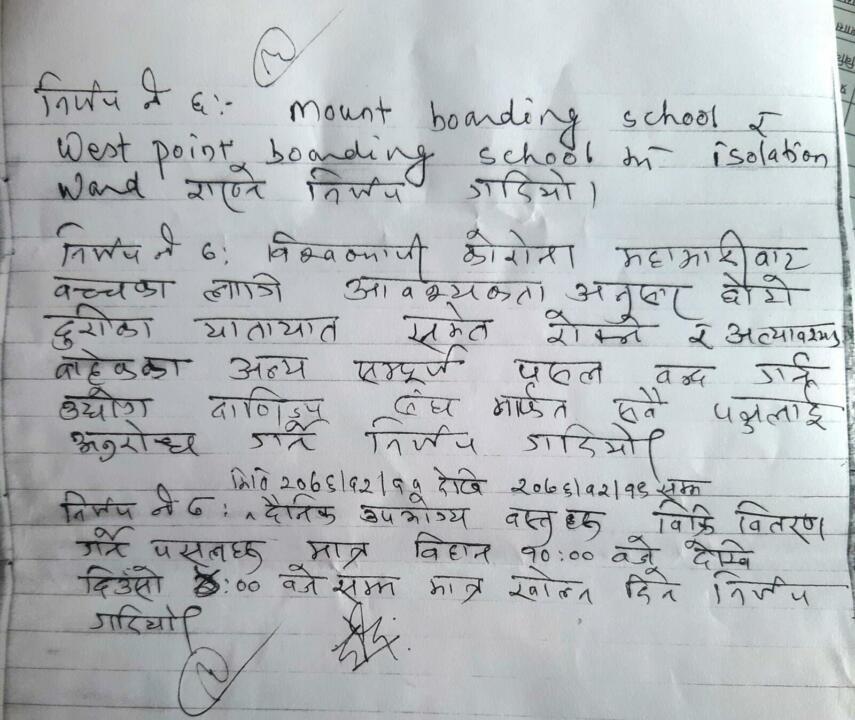 निर्णय नं ६:- Mount boarding school र
West point boarding school मा isolation
Ward राख्ने निर्णय गरियो।
निर्णय नं ७: विश्वव्यापी कोरोना महामारीबाट
बच्चका लागि आवश्यकता अनुसार छोटो
दुरीका यातायात समेत रोक्ने र अत्यावश्यक
बाहेकका अन्य सम्पूर्ण पसल बन्द गर्न
उद्योग वाणिज्य संघ मार्फत सबै पक्षलाई
अनुरोध गर्ने निर्णय गरियो।
मिति २०७६।१२।११ देखि २०७६।१२।१६ सम्म
निर्णय नं ८: दैनिक उपभोग्य वस्तुहरू बिक्रि वितरण
गर्ने पसलहरू मात्र बिहान १०:०० बजे देखि
दिउँसो :०० बजे सम्म मात्र खोल्न दिने निर्णय
गरियो।